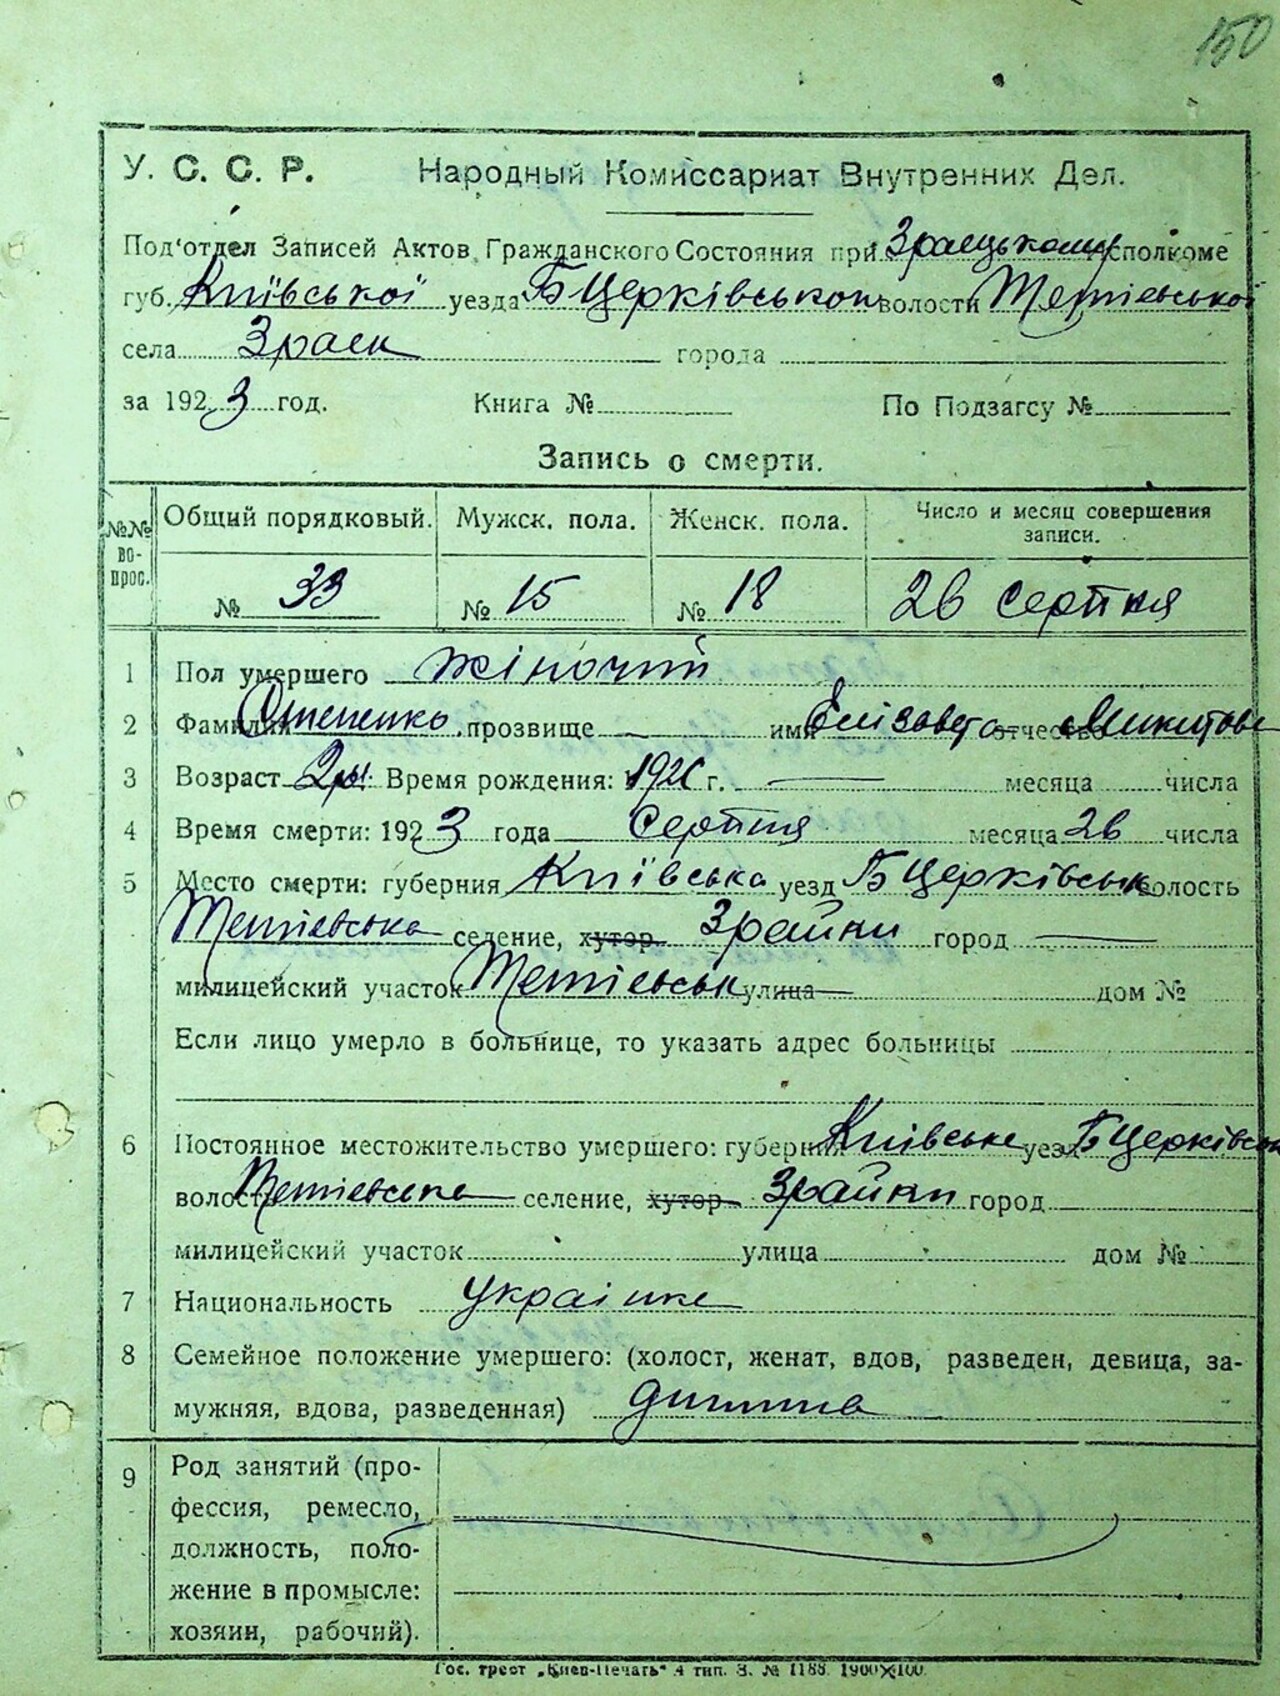 150
У. С. С. Р. Народный Комиссариат Внутренних Дел.
Под'отдел Записей Актов Гражданского Состояния при Зраицькому сполкоме
губ. Київської уезда Б Церківської волости Тетіевської
села города
за 1923 год. Книга № По Подзагсу №
Запись о смерти.
№№ вопрос. Общий порядковый. Мужск. пола. Женск. пола. Число и месяц совершения записи.
№ 33 № 15 № 18 26 Серпня
1 Пол умершего жіночий
2 Фамилия прозвище — имя Елізавета отчество Микитовн
3 Возраст 2 р. Время рождения: 1921 г. — месяца числа
4 Время смерти: 1923 года Серпня месяца 26 числа
5 Место смерти: губерния Київська уезд Б Церківськ волость
Тетіевська селение, хутор Зрайки город —
милицейский участок Тетіевськ улица дом №
Если лицо умерло в больнице, то указать адрес больницы
6 Постоянное местожительство умершего: губерния Київське уезд Б Церківськ
волость Тетіевське селение, хутор Зрайки город
милицейский участок улица дом №
7 Национальность Украінке
8 Семейное положение умершего: (холост, женат, вдов, разведен, девица, за-
мужняя, вдова, разведенная) дитина
9 Род занятий (про-
фессия, ремесло,
должность, поло-
жение в промысле:
хозяин, рабочий).
Гос. трест „Киев-Печать" 4 тип. З. № 1188. 1900×100.